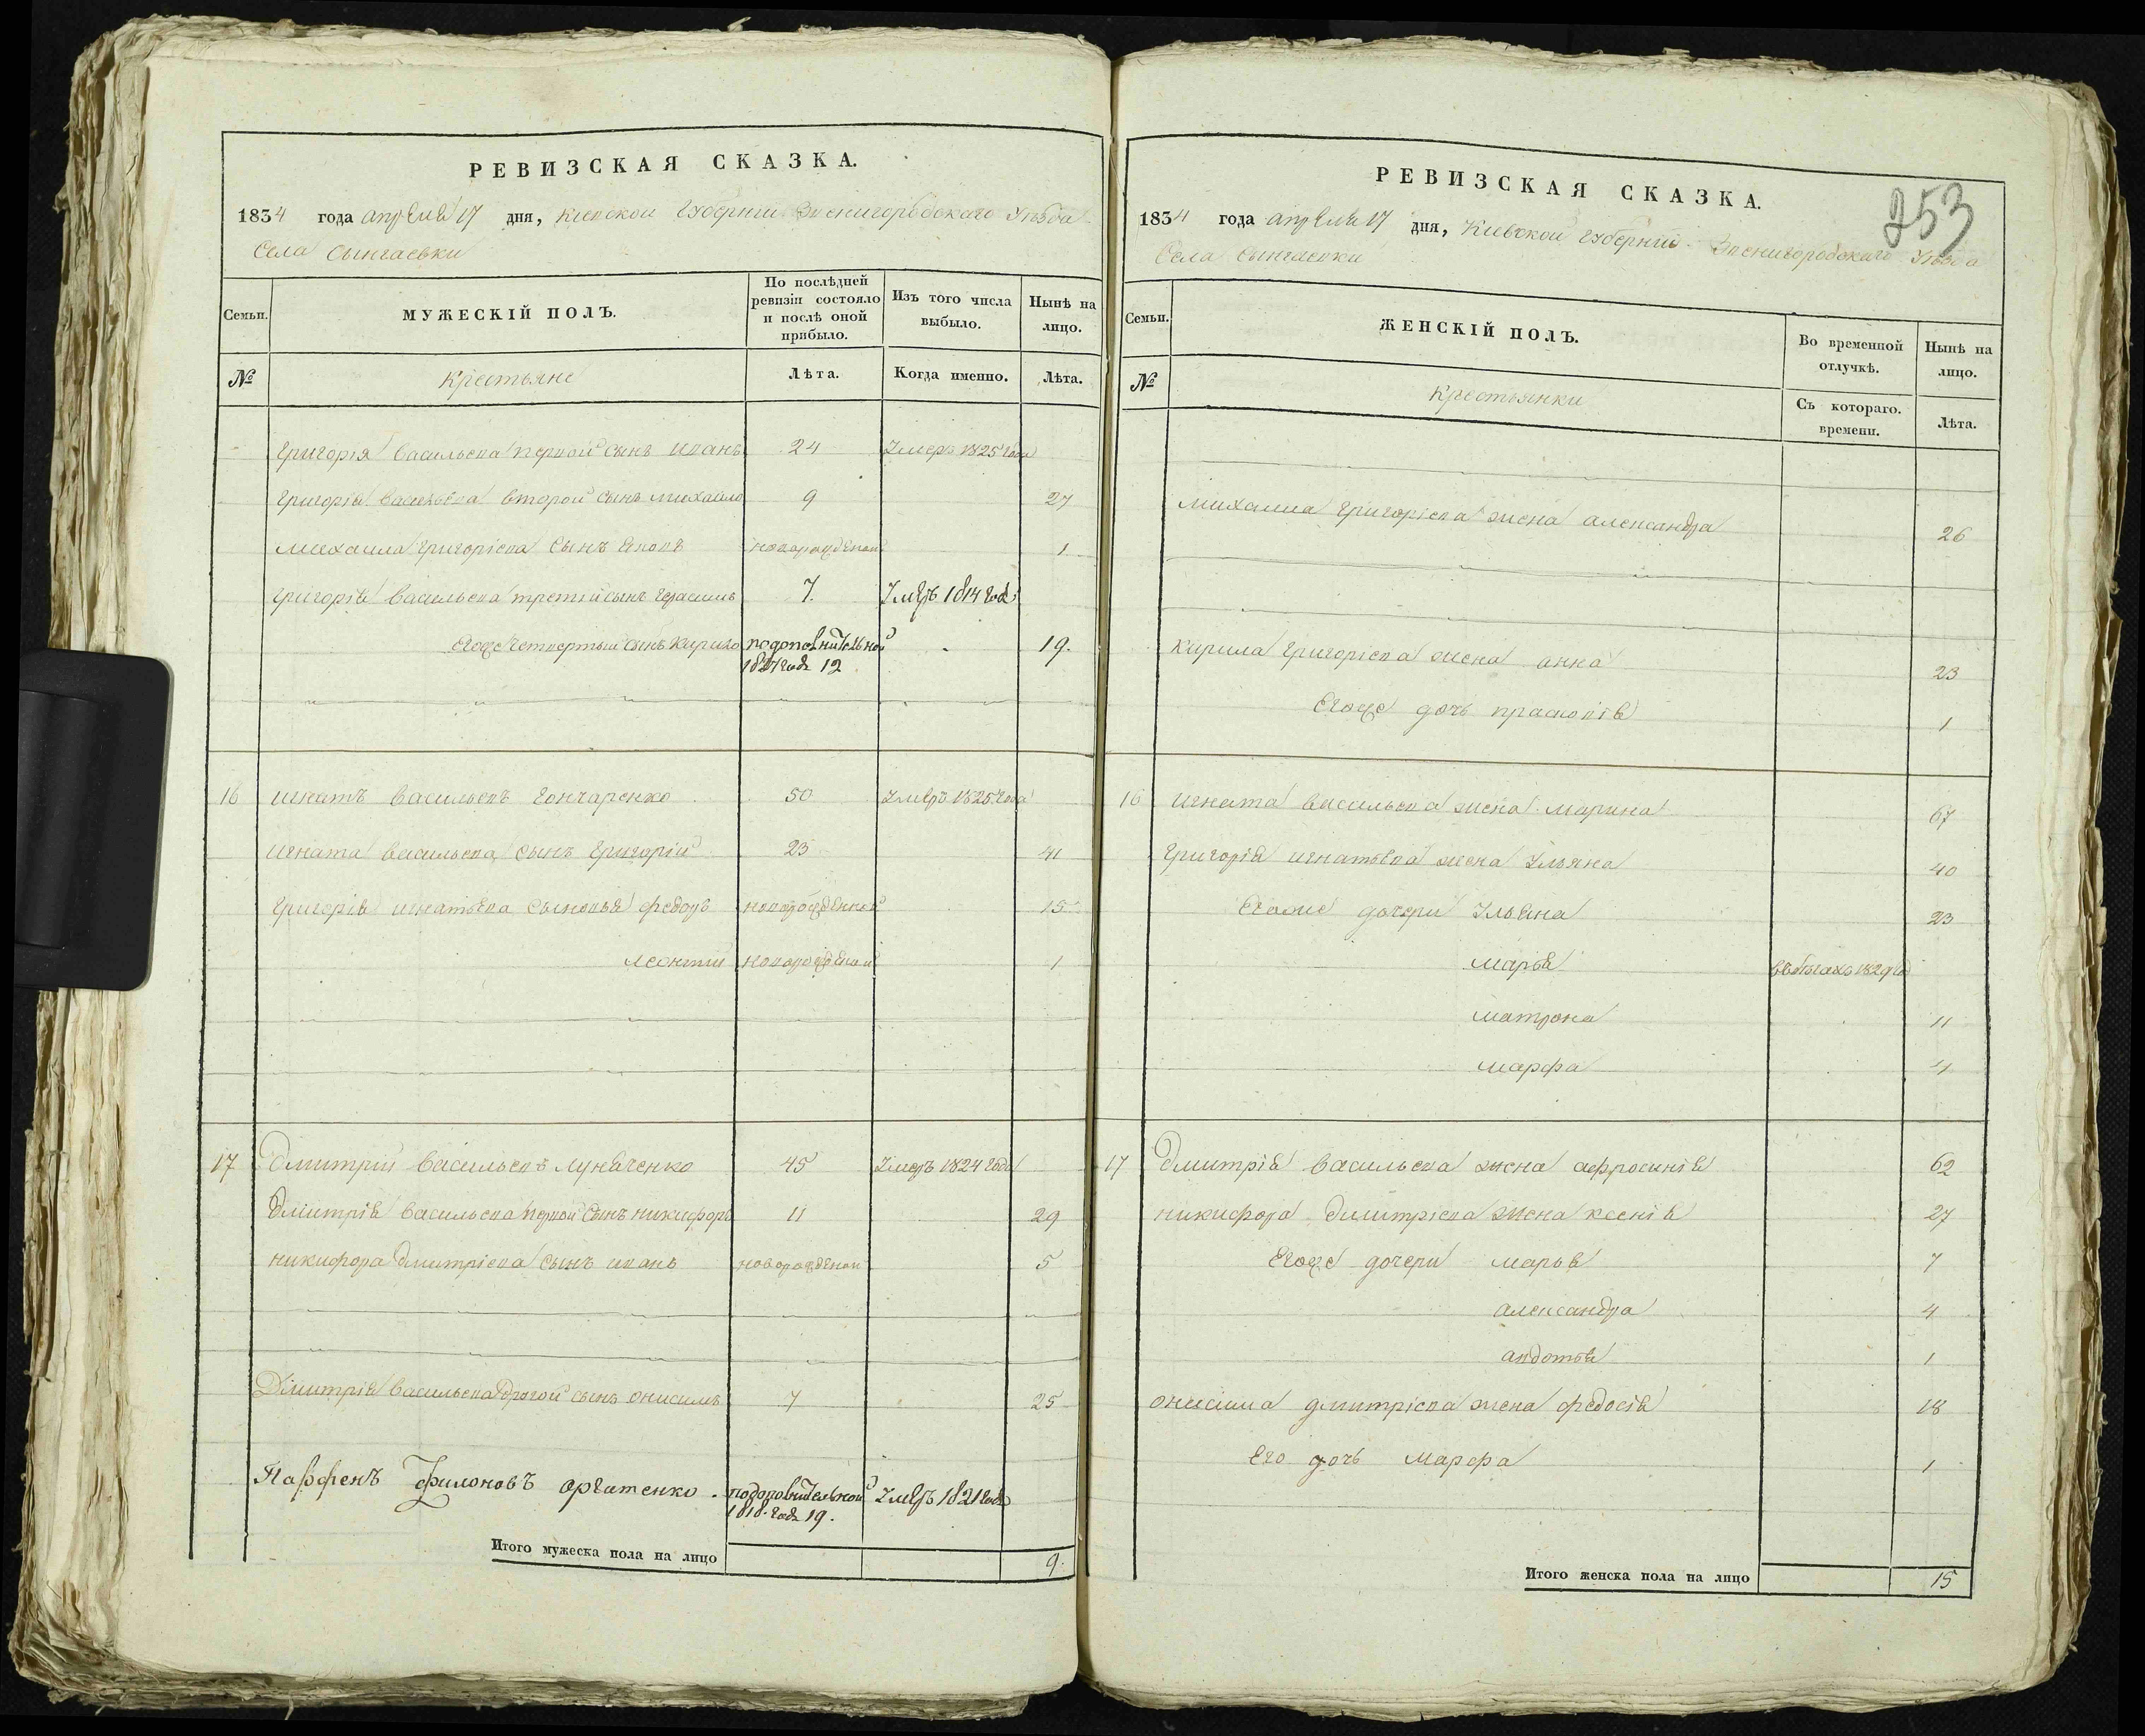 РЕВИЗСКАЯ СКАЗКА.
1834 года апреля 17 дня, Киевской Губернии Звенигородского Уезда
Села Сынгаевки
Семьи.
МУЖЕСКІЙ ПОЛЪ.
По послѣдней
ревизіи состояло
и послѣ оной
прибыло.
Изъ того числа
выбыло.
Нынѣ на
лицо.
№
Крестьяне
Лѣта.
Когда именно.
Лѣта.
Григорія Васильева первой сынъ Иванъ 24 Умеръ 1825 года
Григорія Васильева второй сынъ Михайло 9 27
Михаила Григоріева сынъ Яковъ новорожденой 1
Григорія Васильева третій сынъ Герасимъ 7. Умеръ 1814 года
Егоже четвертый сынъ Кирило подополнительной 19.
12
16 Игнатъ Васильевъ Гончаренко 50 Умеръ 1825 года
Игната Васильева сынъ Григорій 23 41
Григорія Игнатьева сыновья Федоръ новорожденной 15
Леонтий новорожденой 1
17 Дмитрий Васильевъ Луняченко 45 Умеръ 1824 года
Дмитрія Васильева первой сынъ Никифоръ 11 29
Никифора Дмитріева сынъ Иванъ новорожденой 5
Дмитрія Васильева другой сынъ Онисимъ 7 25
Парфенъ Филоновъ подополнительной Умеръ 1821 года
1818. года 19.
Итого мужеска пола на лицо 9.
РЕВИЗСКАЯ СКАЗКА.
253
1834 года апреля 17 дня, Киевской Губерніи Звенигородскаго Уезда
Села Сынгаевки
Семьи.
ЖЕНСКІЙ ПОЛЪ.
Во временной
отлучкѣ.
Нынѣ на
лицо.
№
Крестьянки
Съ котораго.
времени.
Лѣта.
Михаила Григоріева жена Александра 26
Кирила Григоріева жена Анна 23
Егоже дочь Прасковія 1
16 Игната Васильева жена Марина 67
Григорія Игнатьева жена Ульяна 40
Егоже дочери Ульяна 23
Марья в бегахъ 1829 го
Матрона 11
Марфа 4
17 Дмитрія Васильева жена Афросинія 62
Никифора Дмитріева жена Ксенія 27
Егоже дочери Марья 7
Александра 4
Авдотья 1
Онисима Дмитріева жена Федосія 18
Его дочь Марфа 1
Итого женска пола на лицо 15